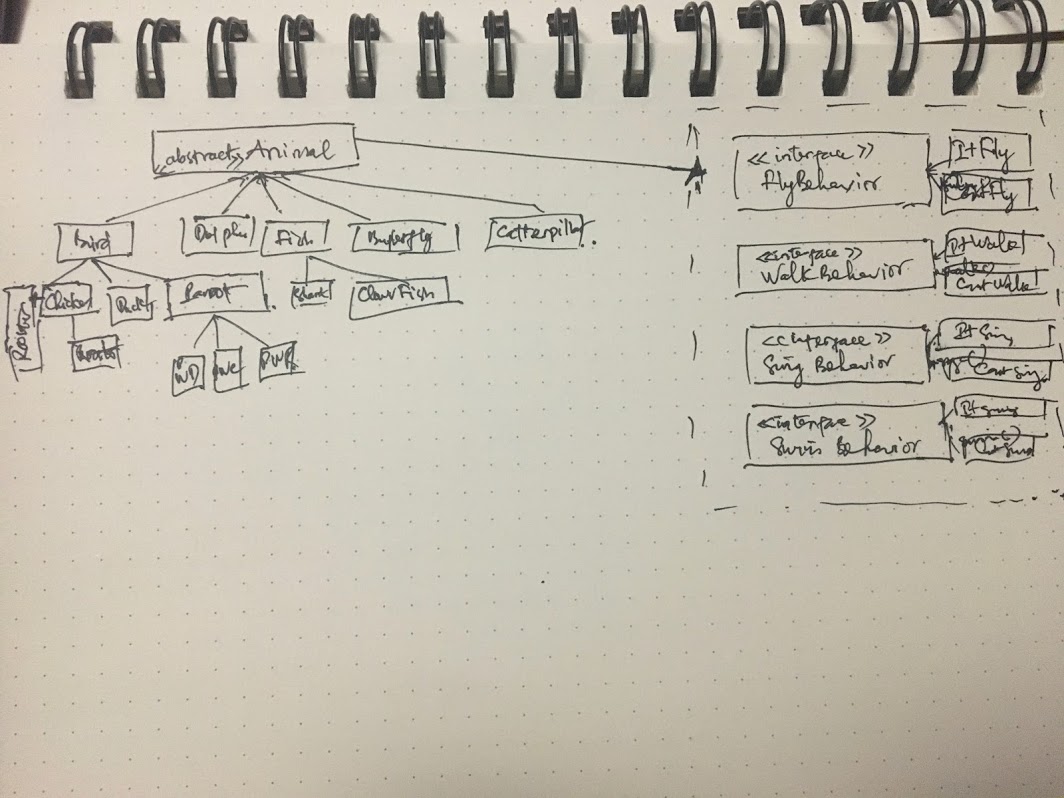 <<abstract>> Animal
Bird
Dolphin
Fish
Butterfly
Catterpillar
Rooster
Chicken
Duck
Parrot
Shark
ClownFish
Rooster
PWD
PWC
PWR
<< interface >>
FlyBehavior
It Fly
Cant Fly
<<interface >>
Walk Behavior
It Walk
Cant Walk
<< Interface >>
Sing Behavior
It Sing
Cant Sing
<<interface >>
Swim Behavior